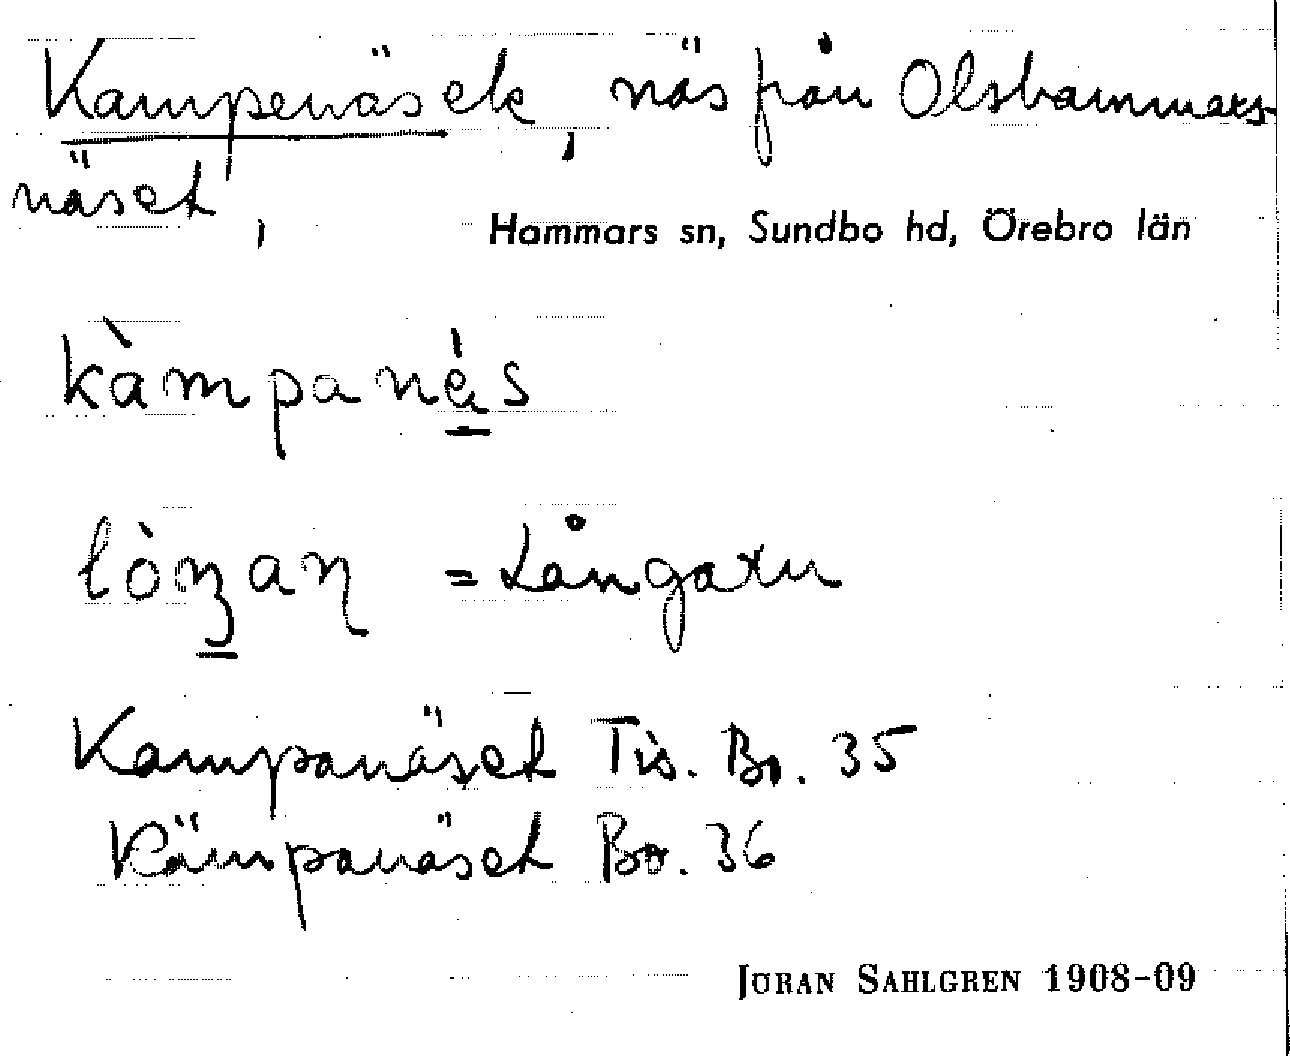 Kampenäset, näs från Olshammars-
näset,
Hammars sn, Sundbo hd, Örebro län
kàmpanäs
= Långaxn
Kampanäset Tis. Bo. 35
Kämpanäset Bo. 36
JÖRAN SAHLGREN 1908-09